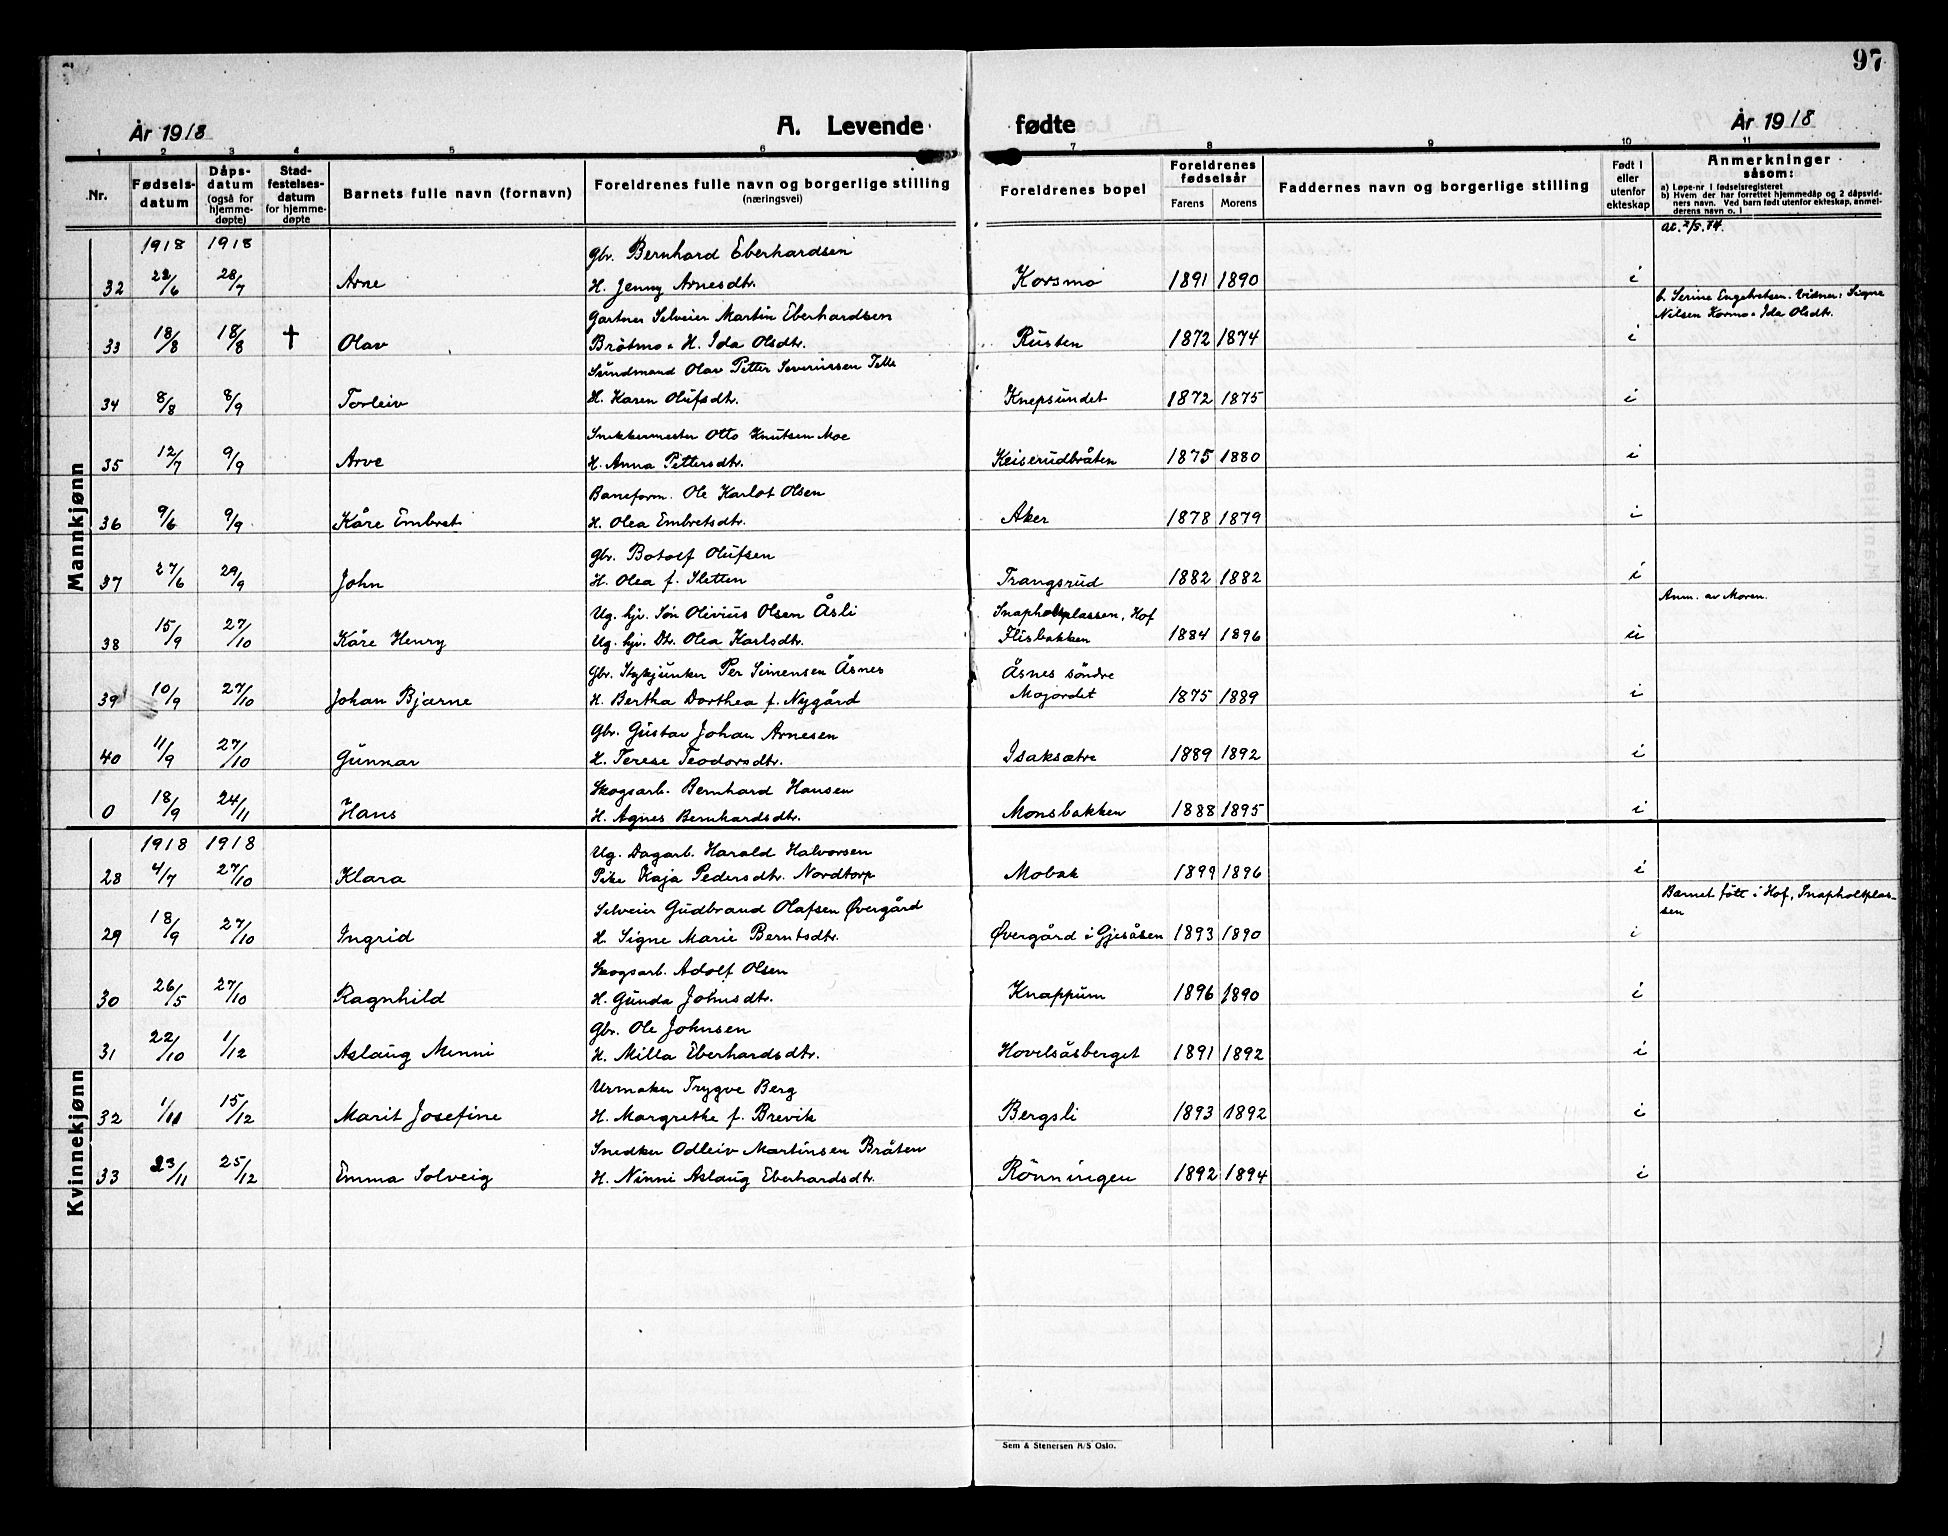 97
År 1918
A. Levende
fødte
År 1918
1 2 3 4 5 6 7 8 9 10 11
Nr.
Fødsels-
datum
Dåps-
datum
(også for
hjemme-
døpte)
Stad-
festelses-
datum
for hjemme-
døpte
Barnets fulle navn (fornavn)
Foreldrenes fulle navn og borgerlige stilling
(næringsvei)
Foreldrenes bopel
Foreldrenes
fødselsår
Farens Morens
Faddernes navn og borgerlige stilling
Født i
eller
utenfor
ekteskap
Anmerkninger
såsom:
a) Løpe-nr i fødselsregisteret
b) Hvem der har forrettet hjemmedåp og 2 dåpsvid-
ners navn. Ved barn født utenfor ekteskap, anmel-
derens navn o. l
Mannkjønn
1918 1918 Gbr. Bernhard Eberhardsen at. 2/5.74.
32 22/6 28/7 Arne H. Jenny Arnesdtr. Korsmo 1891 1890 i
Gartner Selveier Martin Eberhardsen b. Serine Engebretsen. Vidner: Signe
33 18/8 18/8 † Olav Bråtmo. H. Ida Olsdtr. Rusten 1872 1874 i Nilsen Kormo. Ida Olsdtr.
Sundmand Olav Petter Severinssen
34 8/8 8/9 Torleiv H. Karen Olufsdtr. Knepsundet 1872 1875 i
Snekkermester Otto Knutsen Moe
35 12/7 9/9 Arve H. Anna Pettersdtr. Keiserudbråten 1875 1880 i
Baneform. Ole Karlot Olsen
36 9/6 9/9 Kåre Embret H. Olea Embretsdtr. Aker 1878 1879 i
Gbr. Botolf Olufsen
37 27/6 29/9 John H. Olea f. Sletten Trangsrud 1882 1882 i
Ug. hjv. Søn Olivius Olsen Åsli Snapholtplassen, Hof Anm. av Moren.
38 15/9 27/10 Kåre Henry Ug. hjv. Dt. Olea Karlsdtr. Flisbakken 1884 1896 u
Gbr. Stykjunker Per Simensen Åsnes Åsnes søndre
39 10/9 27/10 Johan Bjarne H. Bertha Dorthea f. Nygård Mojordet 1875 1889 i
Gbr. Gustav Johan Arnesen
40 11/9 27/10 Gunnar H. Terese Teodorsdtr. Isaksætre 1889 1892 i
Skogsarb. Bernhard Hansen
0 18/9 24/11 Hans H. Agnes Bernhardsdtr. Monsbakken 1888 1895 i
Kvinnekjønn
1918 1918 Ug. Dagarb. Harald Halvorsen
28 4/7 27/10 Klara Pike Kaja Pedersdtr. Nordtorp Mobak 1899 1896 i
Selveier Gudbrand Olafsen Øvergård Barnet føtt i Hof, Snapholtplas-
sen
29 18/9 27/10 Ingrid H. Signe Marie Berntsdtr. Øvergård i Gjesåsen 1893 1890 i
Skogsarb. Adolf Olsen
30 26/5 27/10 Ragnhild H. Gunda Johnsdtr. Knappum 1896 1890 i
Gbr. Ole Johnsen
31 22/10 1/12 Aslaug Menni H. Milla Eberhardsdtr. Hovelsåsberget 1891 1892 i
Urmaker Trygve Berg
32 1/11 15/12 Marit Josefine H. Margrethe f. Brevik Bergsli 1893 1892 i
Snedker Odleiv Martinsen Bråten
33 23/11 25/12 Emma Solveig H. Ninni Aslaug Eberhardsdtr. Rönningen 1892 1894 i
Sem & Stenersen A/S Oslo.